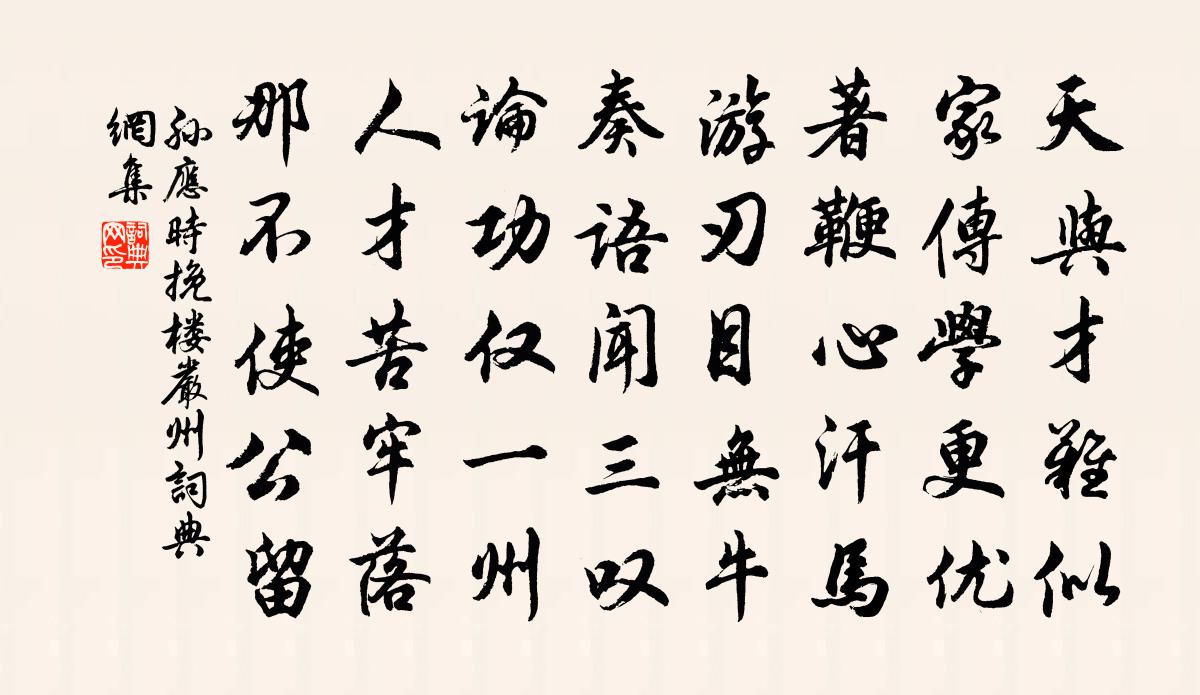 天與才難似
家傳學更优
著鞭心汗馬
游刃目無牛
奏語聞三叹
論功仅一州
人才苦牢落
那不使公留
孫應時挽楼嚴州詞典
網集
詞典
网印